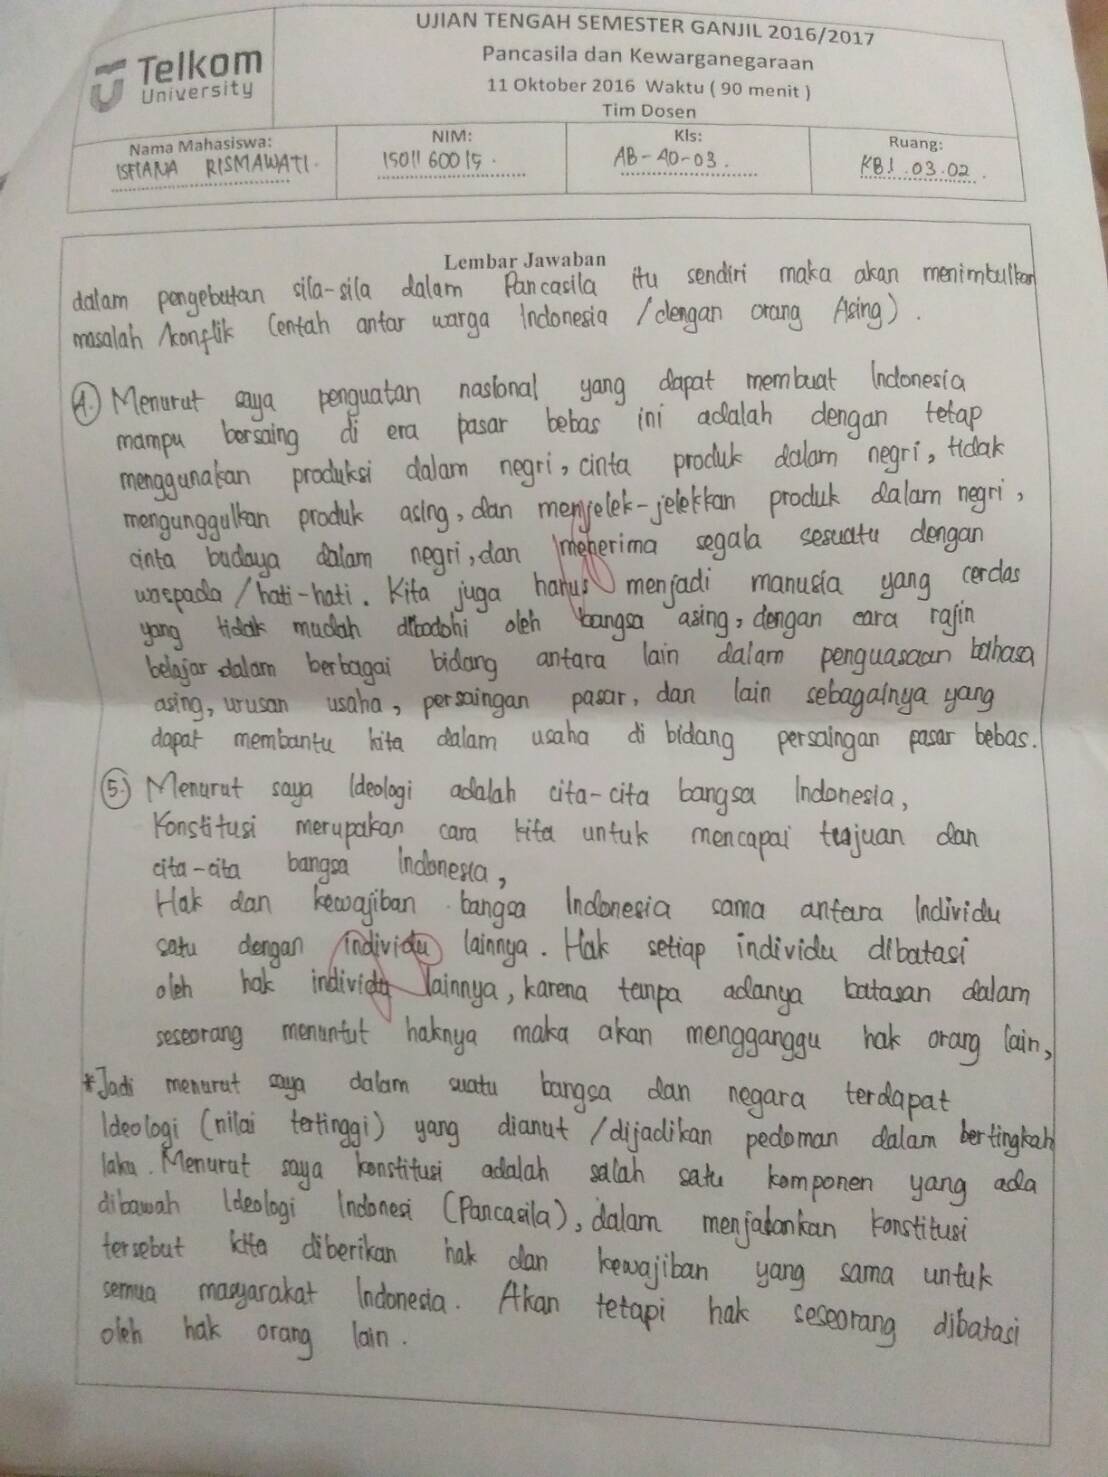 Telkom
University
UJIAN TENGAH SEMESTER GANJIL 2016/2017
Pancasila dan Kewarganegaraan
11 Oktober 2016 Waktu ( 90 menit )
Tim Dosen
Nama Mahasiswa:
ISFIANA RISMAWATI.
NIM:
1501160019.
Kls:
AB-40-03.
Ruang:
KB1.03.02.
Lembar Jawaban
dalam pengebutan sila-sila dalam Pancasila itu sendiri maka akan menimbulkan
masalah /konflik (entah antar warga Indonesia /dengan orang Asing).
4.) Menurut saya penguatan nasional yang dapat membuat Indonesia
mampu bersaing di era pasar bebas ini adalah dengan tetap
menggunakan produksi dalam negri, cinta produk dalam negri, tidak
mengunggulkan produk asing, dan menjelek-jelekkan produk dalam negri,
cinta budaya dalam negri, dan menerima segala sesuatu dengan
waspada /hati-hati. Kita juga harus menjadi manusia yang cerdas
yang tidak mudah dibodohi oleh bangsa asing, dengan cara rajin
belajar dalam berbagai bidang antara lain dalam penguasaan bahasa
asing, urusan usaha, persaingan pasar, dan lain sebagainya yang
dapat membantu kita dalam usaha di bidang persaingan pasar bebas.
5.) Menurut saya Ideologi adalah cita-cita bangsa Indonesia,
Konstitusi merupakan cara kita untuk mencapai tujuan dan
cita-cita bangsa Indonesia,
Hak dan kewajiban bangsa Indonesia sama antara Individu
satu dengan individu lainnya. Hak setiap individu dibatasi
oleh hak individu lainnya, karena tanpa adanya batasan dalam
seseorang menuntut haknya maka akan mengganggu hak orang lain,
*Jadi menurut saya dalam suatu bangsa dan negara terdapat
Ideologi (nilai tertinggi) yang dianut /dijadikan pedoman dalam bertingkah
laku. Menurut saya konstitusi adalah salah satu komponen yang ada
dibawah Ideologi Indonesi (Pancasila), dalam menjalankan konstitusi
tersebut kita diberikan hak dan kewajiban yang sama untuk
semua masyarakat Indonesia. Akan tetapi hak seseorang dibatasi
oleh hak orang lain.